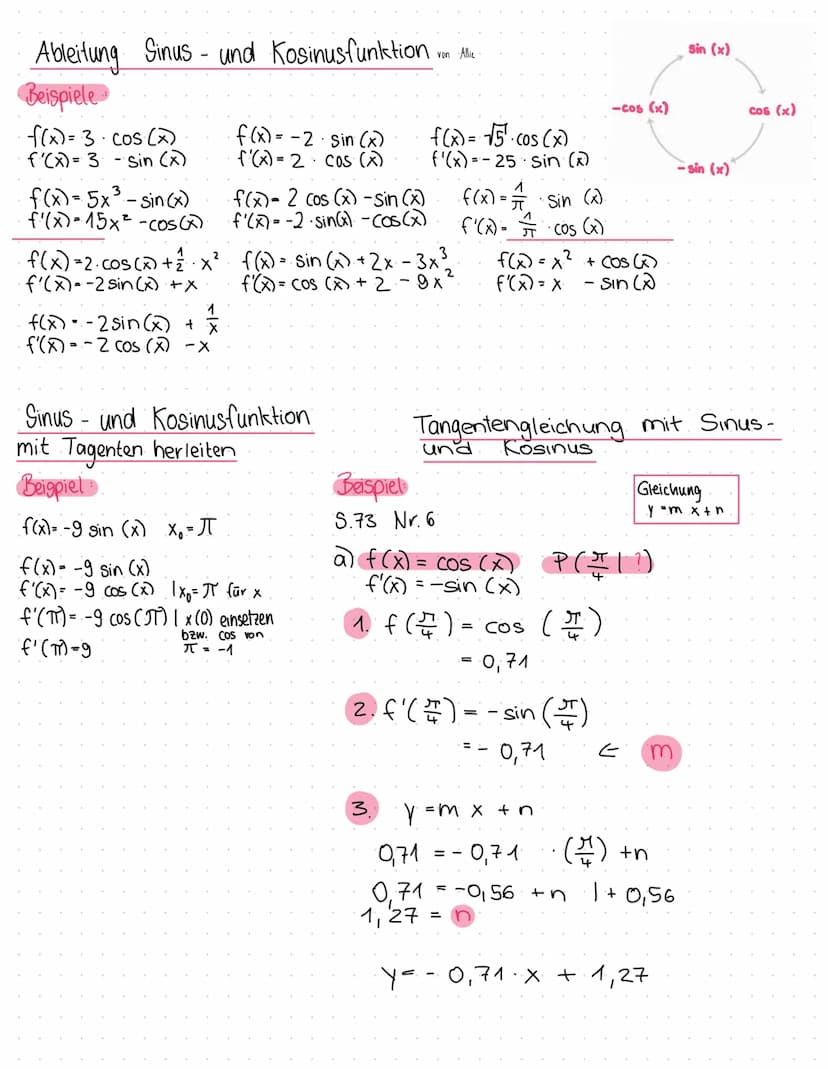 Ableitung Sinus - und Kosinusfunktion von Allie
sin (x)
cos (x)
- sin (x)
-cos (x)
Beispiele
f(x) = 3 · cos (x)
f'(x) = 3 - sin (x)
f(x) = -2 · sin (x)
f'(x) = 2 · cos (x)
f(x) = √5 · cos (x)
f'(x) = - 25 · sin (x)
f(x) = 5x³ - sin(x)
f'(x) = 15x² - cos(x)
f(x) = 2 cos (x) - sin (x)
f'(x) = -2 · sin(x) - cos(x)
f(x) = 1/π · sin (x)
f'(x) = 1/π · cos (x)
f(x) = 2 · cos (x) + 1/2 · x²
f'(x) = -2 sin (x) + x
f(x) = sin (x) + 2x - 3x³
f'(x) = cos (x) + 2 - 9x²
f(x) = x² + cos (x)
f'(x) = x - sin (x)
f(x) = - 2 sin (x) + 1/x
f'(x) = - 2 cos (x) - x
Sinus - und Kosinusfunktion
mit Tagenten herleiten
Beispiel:
f(x) = -9 sin (x) x₀ = π
f(x) = -9 sin (x)
f'(x) = -9 cos (x) | x₀ = π für x
f'(π) = -9 cos (π) | x (0) einsetzen
bzw. cos von
π = -1
f'(π) = 9
Tangentengleichung mit Sinus-
und Kosinus
Beispiel:
Gleichung
y = m x + n
S.73 Nr. 6
a) f(x) = cos (x) P(π/4 | ?)
f'(x) = - sin (x)
1. f (π/4) = cos (π/4)
= 0,71
2. f'(π/4) = - sin (π/4)
= - 0,71 ⇐ m
3. y = m x + n
0,71 = - 0,71 · (π/4) + n
0,71 = -0,56 + n | + 0,56
1,27 = n
y = - 0,71 · x + 1,27